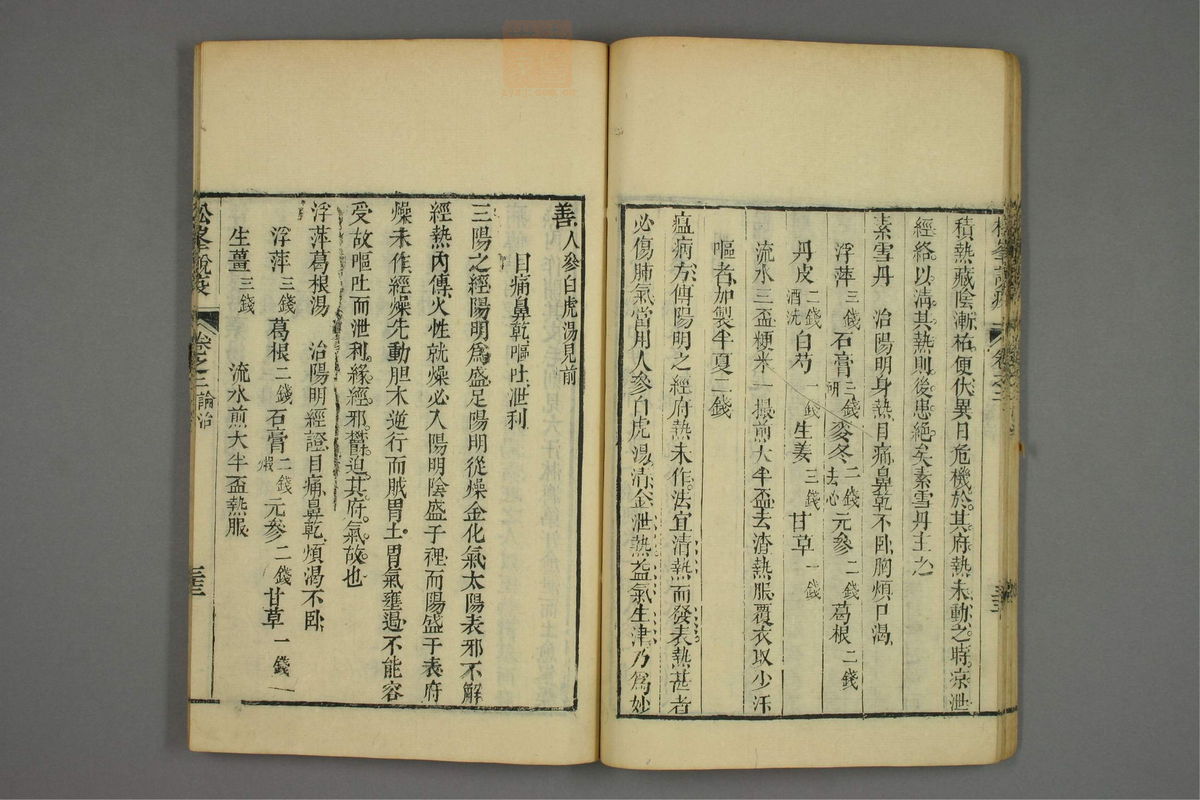 積熱藏陰漸柘便伏異日危機於其府熱未動之時凉泄
經絡以清其熱則後患絕矣素雪丹主之
素雪丹　治陽明身熱目痛鼻乾不臥胸煩口渴
浮萍三錢石膏三錢研麥冬二錢去心元參二錢葛根二錢
丹皮二錢酒洗白芍一錢生姜三錢甘草一錢
流水三盃粳米一撮煎大半盃去渣熱服覆衣取少汗
嘔者加製半夏二錢
瘟病方傳陽明之經府熱未作法宜清熱而發表熱甚者
必傷肺氣當用人參白虎湯清金泄熱益氣生津乃爲妙
松峯說疫　卷之三
善人參白虎湯見前
目痛鼻乾嘔吐泄利
三陽之經陽明爲盛足陽明從燥金化氣太陽表邪不解
經熱內傳火性就燥必入陽明陰盛于裡而陽盛于表府
燥未作經燥先動胆木逆行而賊胃土胃氣壅遏不能容
受故嘔吐而泄利緣經邪鬱迫其府氣故也
浮萍葛根湯　治陽明經證目痛鼻乾煩渴不臥
浮萍三錢葛根二錢石膏二錢煅元參二錢甘草一錢
生薑三錢　流水煎大半盃熱服
松峯說疫　卷之三論治　三三